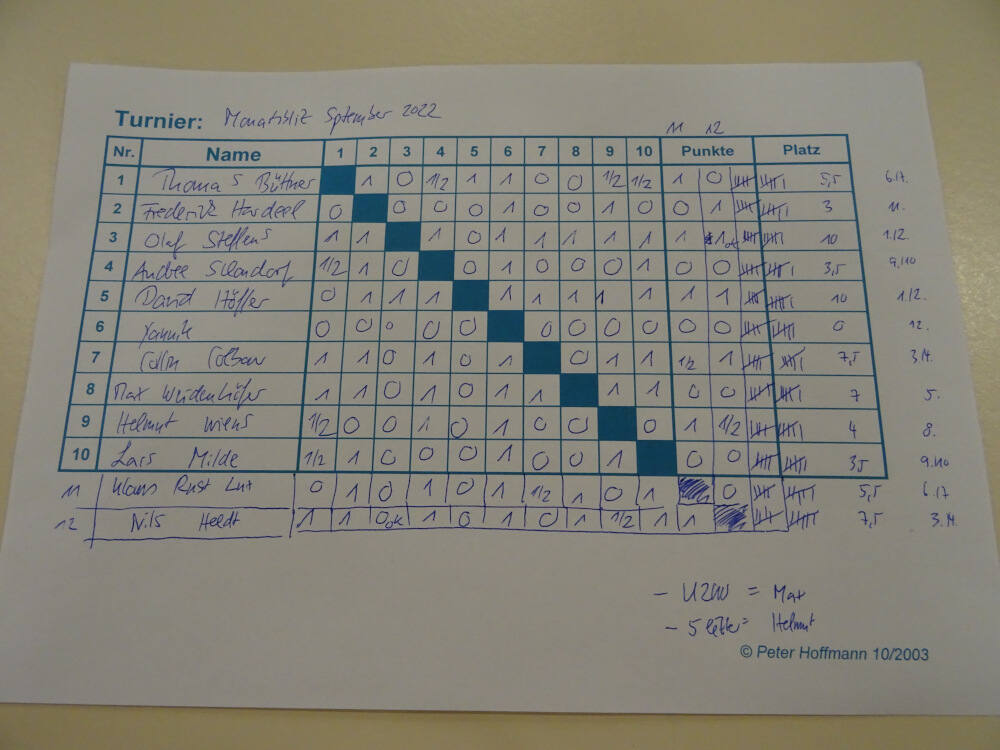 Turnier: Monatsblitz September 2022
11 12
Nr. Name 1 2 3 4 5 6 7 8 9 10 Punkte Platz
1 Thomas Büttner 1 0 1/2 1 1 0 0 1/2 1/2 1 0 5,5 6.17.
2 Frederik Hardeel 0 0 0 0 1 0 0 1 0 0 1 3 11.
3 Olaf Steffens 1 1 1 0 1 1 1 1 1 1 1 ok 10 1.12.
4 0 1/2 1 0 0 1 0 0 0 1 0 0 3,5 9./10
5 David Höffer 0 1 1 1 1 1 1 1 1 1 1 10 1.12.
6 Yannik 0 0 0 0 0 0 0 0 0 0 0 0 12.
7 Colin Colbow 1 1 0 1 0 1 0 1 1 1/2 1 7,5 3.14.
8 Max Weidenhöfer 1 1 0 1 0 1 1 1 1 0 0 7 5.
9 Helmut Wiens 1/2 0 0 1 0 1 0 0 0 1 1/2 4 8.
10 Lars Milde 1/2 1 0 0 0 1 0 0 1 0 0 3,5 9.10
11 Klaus Rust Lux 0 1 0 1 0 1 1/2 1 0 1 0 5,5 6.17
12 Nils Heldt 1 1 0 ok 1 0 1 0 1 1/2 1 1 7,5 3.14.
- = Max
- = Helmut
© Peter Hoffmann 10/2003